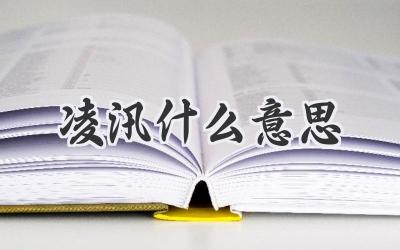 凌汛什么意思